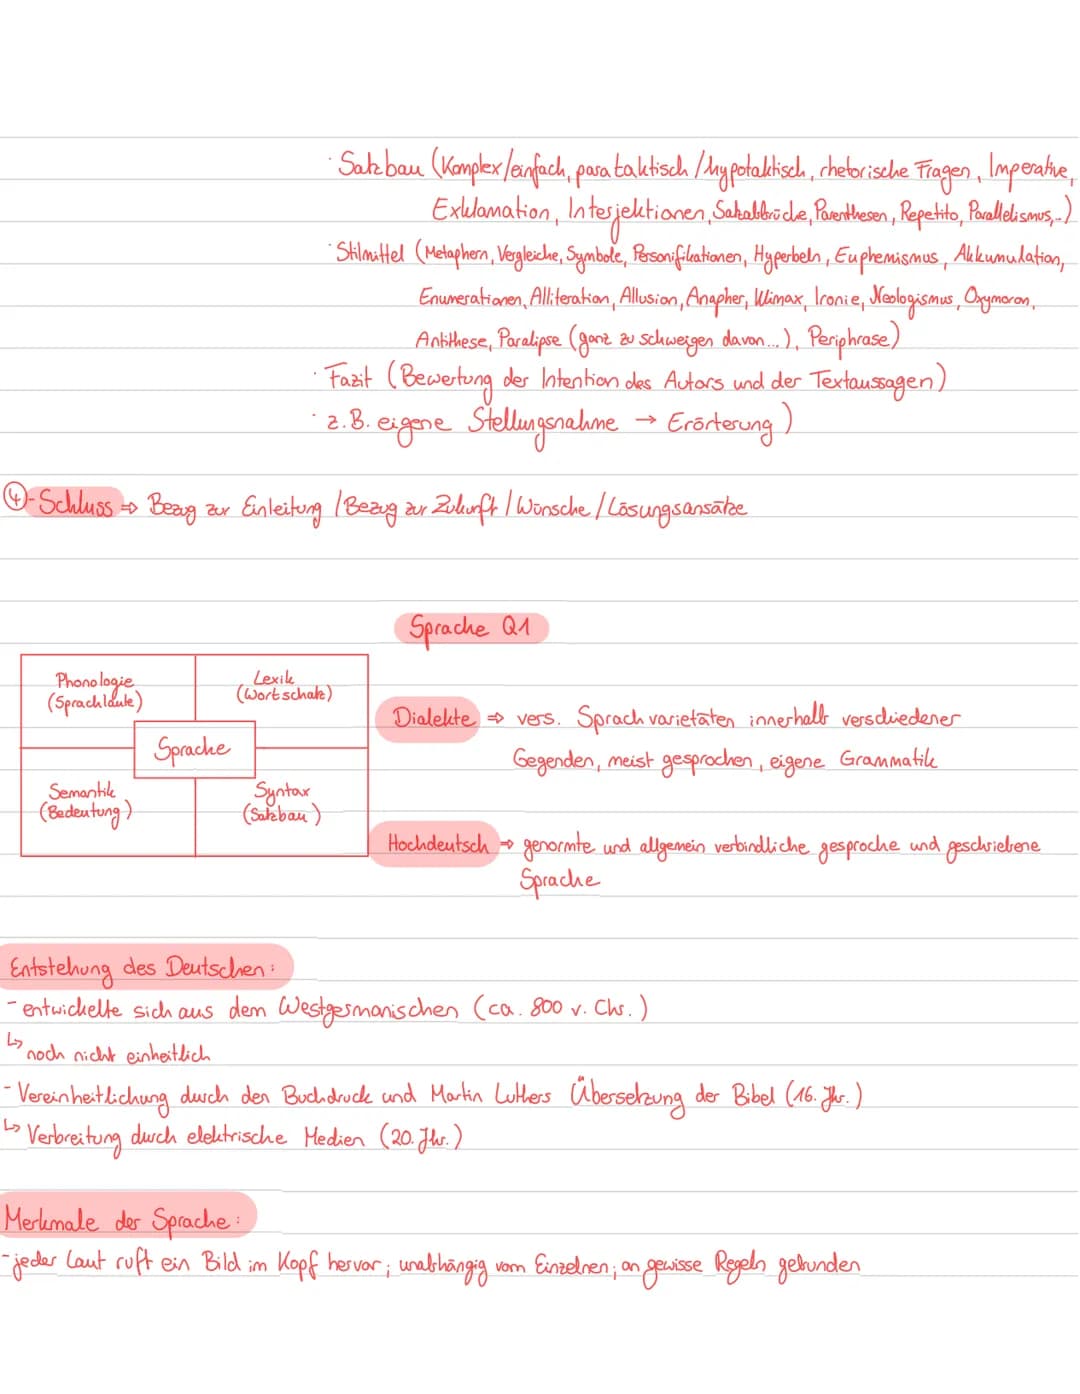 · Satzbau (Komplex/einfach, parataktisch/hypotaktisch, rhetorische Fragen, Imperative,
Exklamation, Interjektionen, Satzabbrüche, Parenthesen, Repetito, Parallelismus,..)
· Stilmittel (Metaphern, Vergleiche, Symbole, Personifikationen, Hyperbeln, Euphemismus, Akkumulation,
Enumerationen, Alliteration, Allusion, Anapher, Klimax, Ironie, Neologismus, Oxymoron,
Antithese, Paralipse (ganz zu schweigen davon...), Periphrase)
· Fazit (Bewertung der Intention des Autors und der Textaussagen)
· z.B. eigene Stellungsnahme → Erörterung)
④-Schluss ⇒ Bezug zur Einleitung / Bezug zur Zukunft / Wünsche / Lösungsansätze
Sprache Q1
Phonologie
(Sprachlaute)
Lexik
(Wortschatz)
Sprache
Semantik
(Bedeutung)
Syntax
(Satzbau)
Dialekte ⇒ vers. Sprachvarietäten innerhalb verschiedener
Gegenden, meist gesprochen, eigene Grammatik
Hochdeutsch ⇒ genormte und allgemein verbindliche gesproche und geschriebene
Sprache
Entstehung des Deutschen:
- entwickelte sich aus dem Westgermanischen (ca. 800 v. Chr.)
↳ noch nicht einheitlich
- Vereinheitlichung durch den Buchdruck und Martin Luthers Übersetzung der Bibel (16. Jhr.)
↳ Verbreitung durch elektrische Medien (20. Jhr.)
Merkmale der Sprache:
- jeder Laut ruft ein Bild im Kopf hervor; unabhängig vom Einzelnen; an gewisse Regeln gebunden